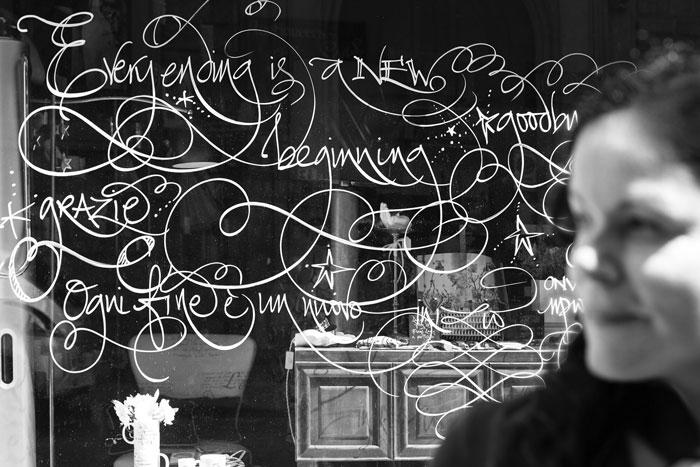 Every ending is a NEW
beginning
*goodb
*GRAZIE*
Ogni fine è un nuovo
in